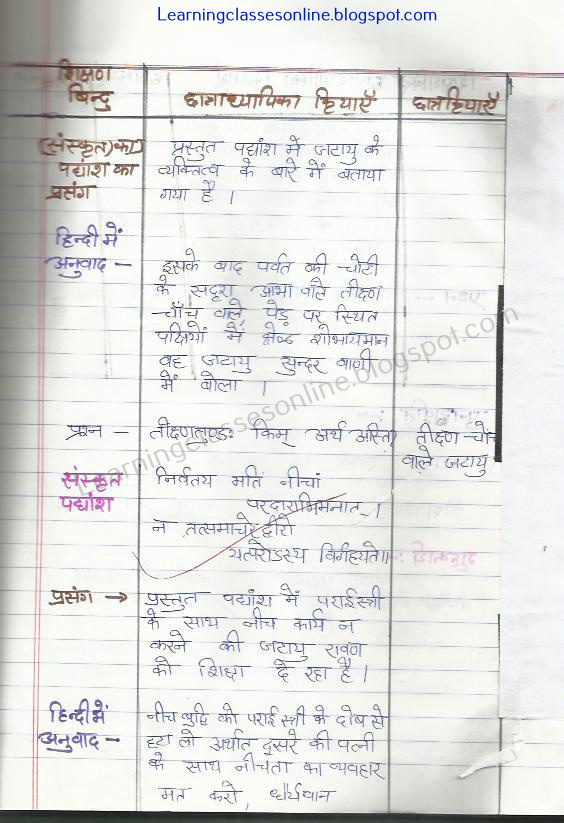 Learningclassesonline.blogspot.com
शिक्षण
बिन्दु
छात्राध्यापिका क्रियाएँ
छात्र क्रियाएँ
(संस्कृत) का
पद्यांश का
प्रसंग
प्रस्तुत पद्यांश में जटायु के
व्यक्तित्व के बारे में बताया
गया है ।
हिन्दी में
अनुवाद –
इसके बाद पर्वत की चोटी
के सदृश आभा वाले तीक्ष्ण
चोंच वाले, पेड़ पर स्थित
पक्षियों में श्रेष्ठ शोभायमान
वह जटायु सुन्दर वाणी
में बोला ।
प्रश्न – तीक्ष्णतुण्डः किम् अर्थ अस्ति।
तीक्ष्ण चोंच
वाले जटायु
संस्कृत
पद्यांश
निर्वतय मतिं नीचां
परदाराभिमर्शनात् ।
न तत्समाचरेद्धीरो
यत्परोडस्य विर्गहयते॥
प्रसंग →
प्रस्तुत पद्यांश में पराई स्त्री
के साथ नीच कार्य न
करने की जटायु रावण
को शिक्षा दे रहा है ।
हिन्दी में
अनुवाद –
नीच बुद्धि को पराई स्त्री के दोष से
हटा लो अर्थात दूसरे की पत्नी
के साथ नीचता का व्यवहार
मत करो, धैर्यवान
learningclassesonline.blogspot.com